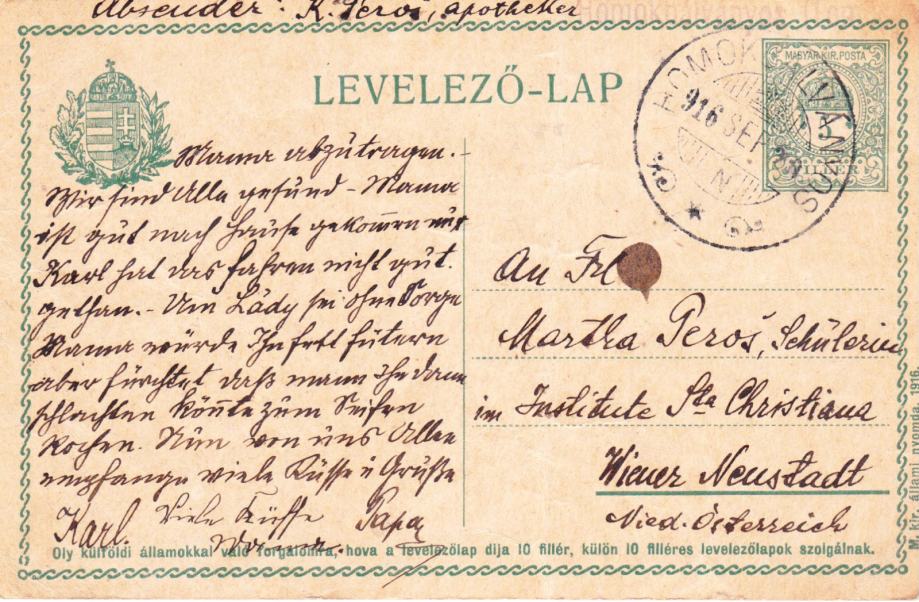 Absender: K. Peroš, apotheker
LEVELEZŐ-LAP
MAGYAR KIR. POSTA
5
FILLÉR
916 SEP
N
Mama abzutragen.-
Wir sind Alle gesund - Mama
ist gut nach Hause gekommen nur
Karl hat das fahren nicht gut.
gethan.- Um Lädy sei ohne Sorge
Mama würde Ihn fett fütern
aber fürchtet daß mann ihn dann
schlachten könnte zum Seifen
kochen. Nun von uns Allen
empfange viele Küsse u Grüße
Karl. Viele Küsse Papa
Mama.
An Frl
Martha Peroš, Schülerin
im Institute Sta Christiana
Wiener Neustadt
Nied. Österreich
Oly külföldi államokkal való forgalomra, hova a levelezőlap díja 10 fillér, külön 10 filléres levelezőlapok szolgálnak.
M. kir. állami nyomda. 1916.